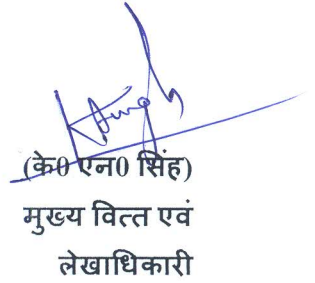 (के0 एन0 सिंह)
मुख्य वित्त एवं
लेखाधिकारी